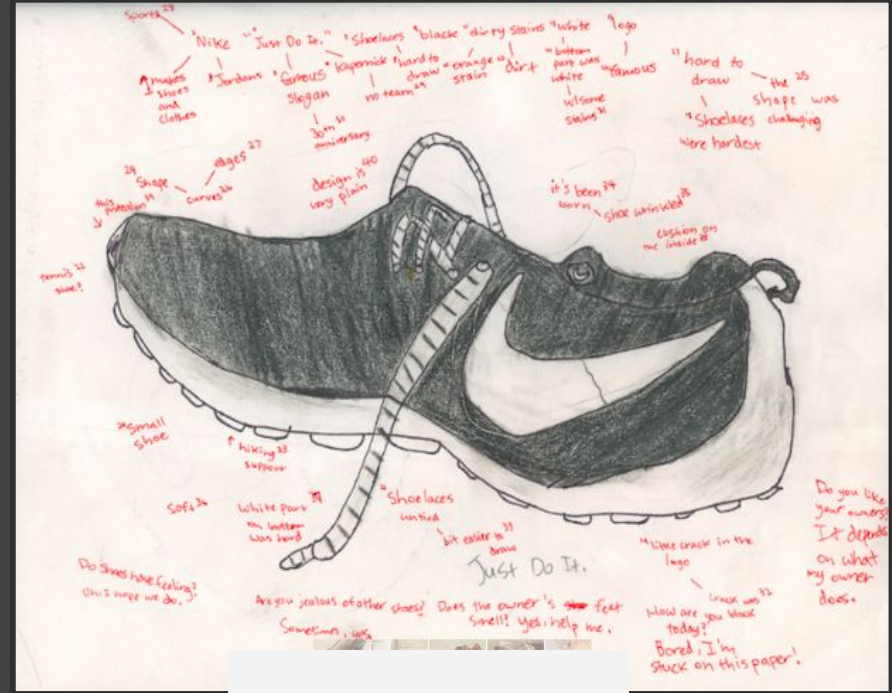 Sports
"Nike "Just Do It." Shoelaces "black "dirty stains "white logo
makes shoes and clothes
"Jordans
famous slogan
30th anniversary
Kapernick
no team
hard to draw
"orange stain
dirt
bottom part was white
w/some stains
famous
hard to draw
the shape was challenging
Shoelaces were hardest
edges 27
Shape
curves 26
this
design is 40
very plain
it's been 34
worn
shoe wrinkled 35
cushion on
the inside
tennis
shoe?
small
shoe
hiking 23
support
Soft 36
White part
on bottom
was hard
Shoelaces
untied
bit easier to 33
draw
Just Do It.
little crack in the
logo
crack was
Do you like
your owners?
It depends
on what
my owner
does.
Do shoes have feeling?
Uh I hope we do.
Are you jealous of other shoes?
Sometimes, yes.
Does the owner's feet
smell? Yes, help me.
How are you black
today?
Bored, I'm
stuck on this paper!